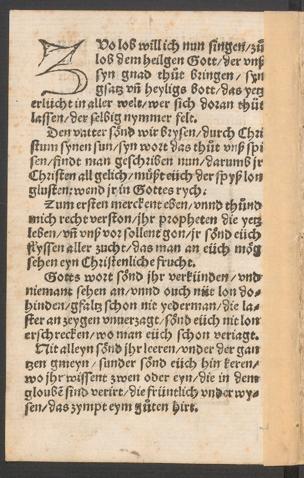 ZVo lob will ich nun singen/ zů
lob dem heilgen Gott/ der vnß
syn gnad thůt bringen/ syn
gsatz vñ heyligs bott/ das yetz
erlücht in aller welt/ wer sich doran thůt
lassen/ der selbig nymmer felt.
Den vatter sǒnd wir brysen/ durch Chri
stum synen sun/ syn wort das thůt vnß spi
sen/ findt man geschriben nun/ darumb jr
Christen all gelich/ můßt eüch der spyß lon
glusten/ wend jr in Gottes rych.
Zum ersten merckent eben/ vnnd thünd
mich recht verston/ jhr propheten die yetz
leben/ vñ vnß vor sollent gon/ jr sǒnd eüch
flyssen aller zucht/ das man an eüch mǒg
sehen eyn Christenliche frucht.
Gotts wort sǒnd jhr verkünden/ vnd
niemant sehen an/ vnnd ouch nüt lon do-
hinden/ gfaltz schon nit yederman/ die la-
ster anzeygen vnuerzagt/ sǒnd eüch nit lon
erschrecken/ wo man eüch schon veriagt.
Nit alleyn sǒnd jhr leeren/ vnder der gan
tzen gmeyn/ sunder sǒnd eüch hin keren/
wo jhr wissent zwen oder eyn/ die in dem
gloubẽ sind verirt/ die früntlich vnder wy-
sen/ das zympt eym gůten hirt.